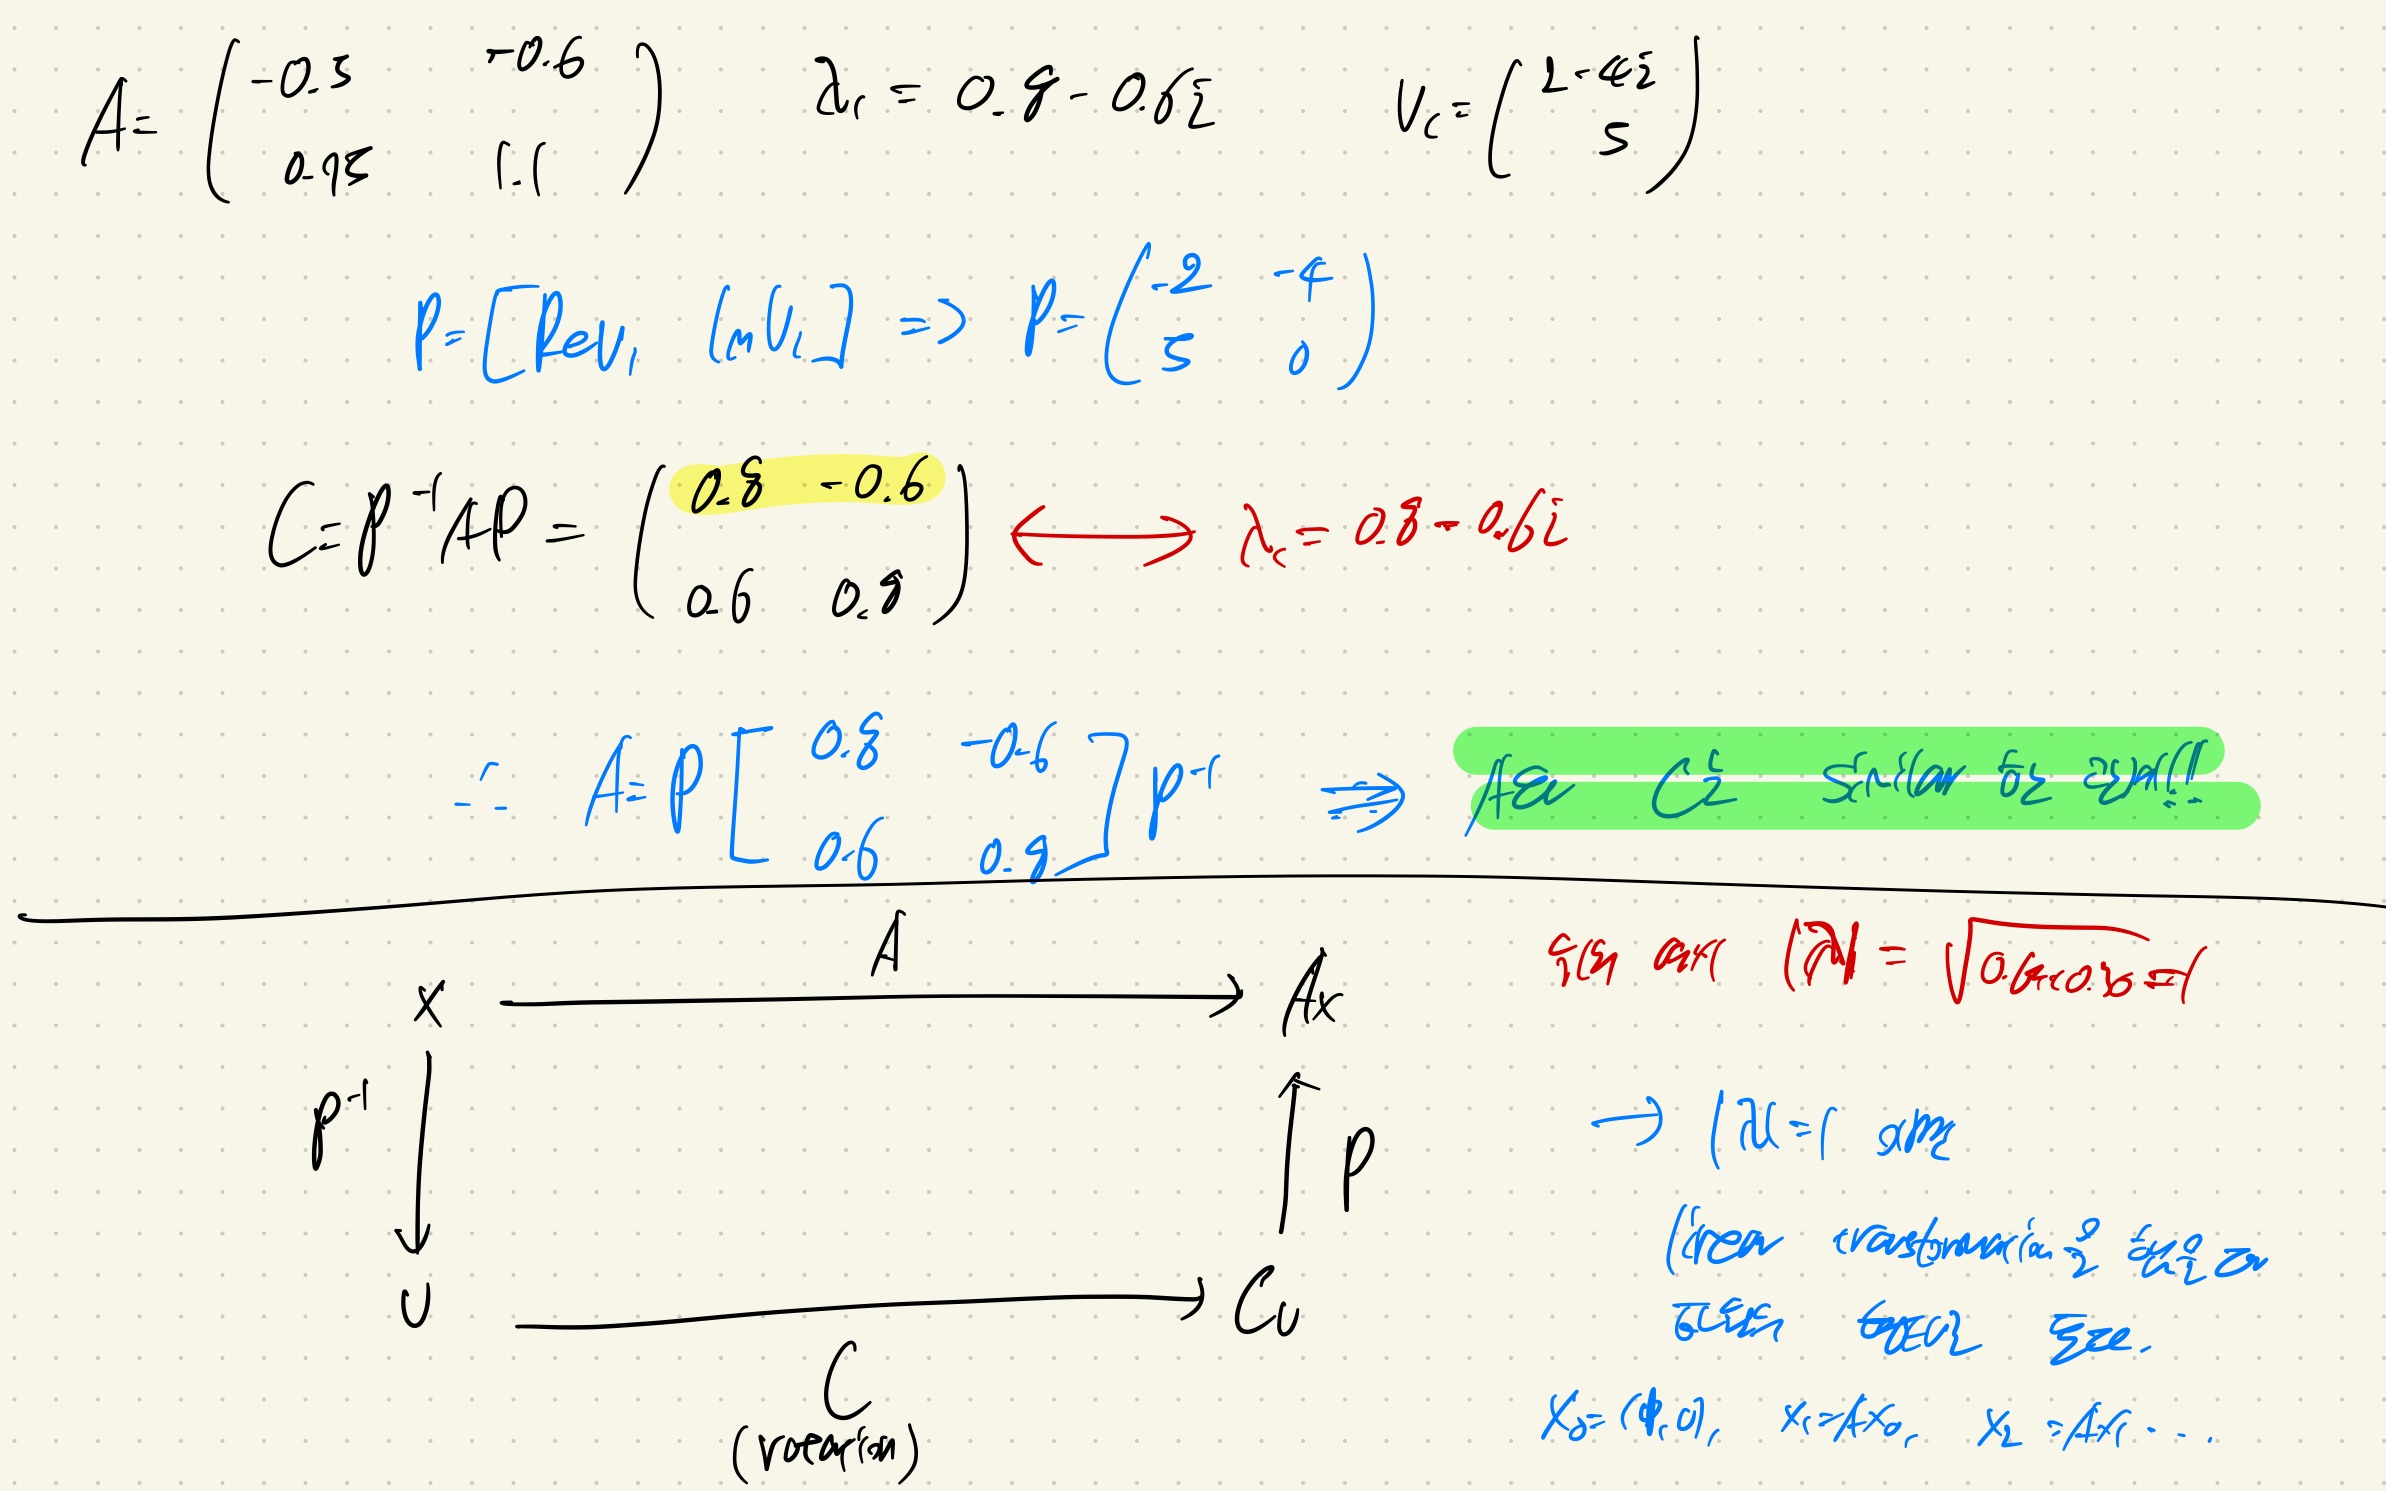 A = ( -0.5 -0.6
0.75 1.1 )
λ₁ = 0.8 - 0.6i
V₁ = ( 2-4i
5 )
P = [Rev₁ ImV₁] => P = ( -2 -4
5 0 )
C = P⁻¹AP = ( 0.8 -0.6
0.6 0.8 ) ↔ λ₁ = 0.8 - 0.6i
∴ A = P [ 0.8 -0.6
0.6 0.8 ] P⁻¹ ⇒ C로 similar
A
x → Ax
P⁻¹
P
U → Cu
C
(rotation)
|λ| = √0.64+0.36 = 1
→ |λ| = 1
linear transformation을
X₀ = (1,0), X₁ = AX₀, X₂ = AX₁ ...